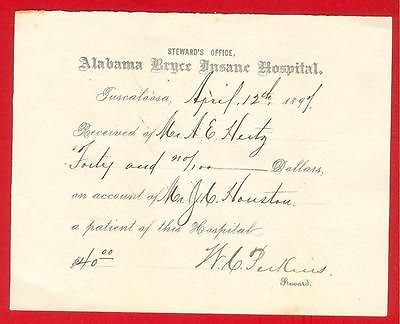 STEWARD'S OFFICE,
Alabama Bryce Insane Hospital.
Tuscaloosa, April 12th, 1897
Received of Mr A. E. Hertz
Forty and no/100 Dollars,
on account of Mr. J. C. Houston
a patient of this Hospital
$40.00
W. C. Perkins.
Steward.